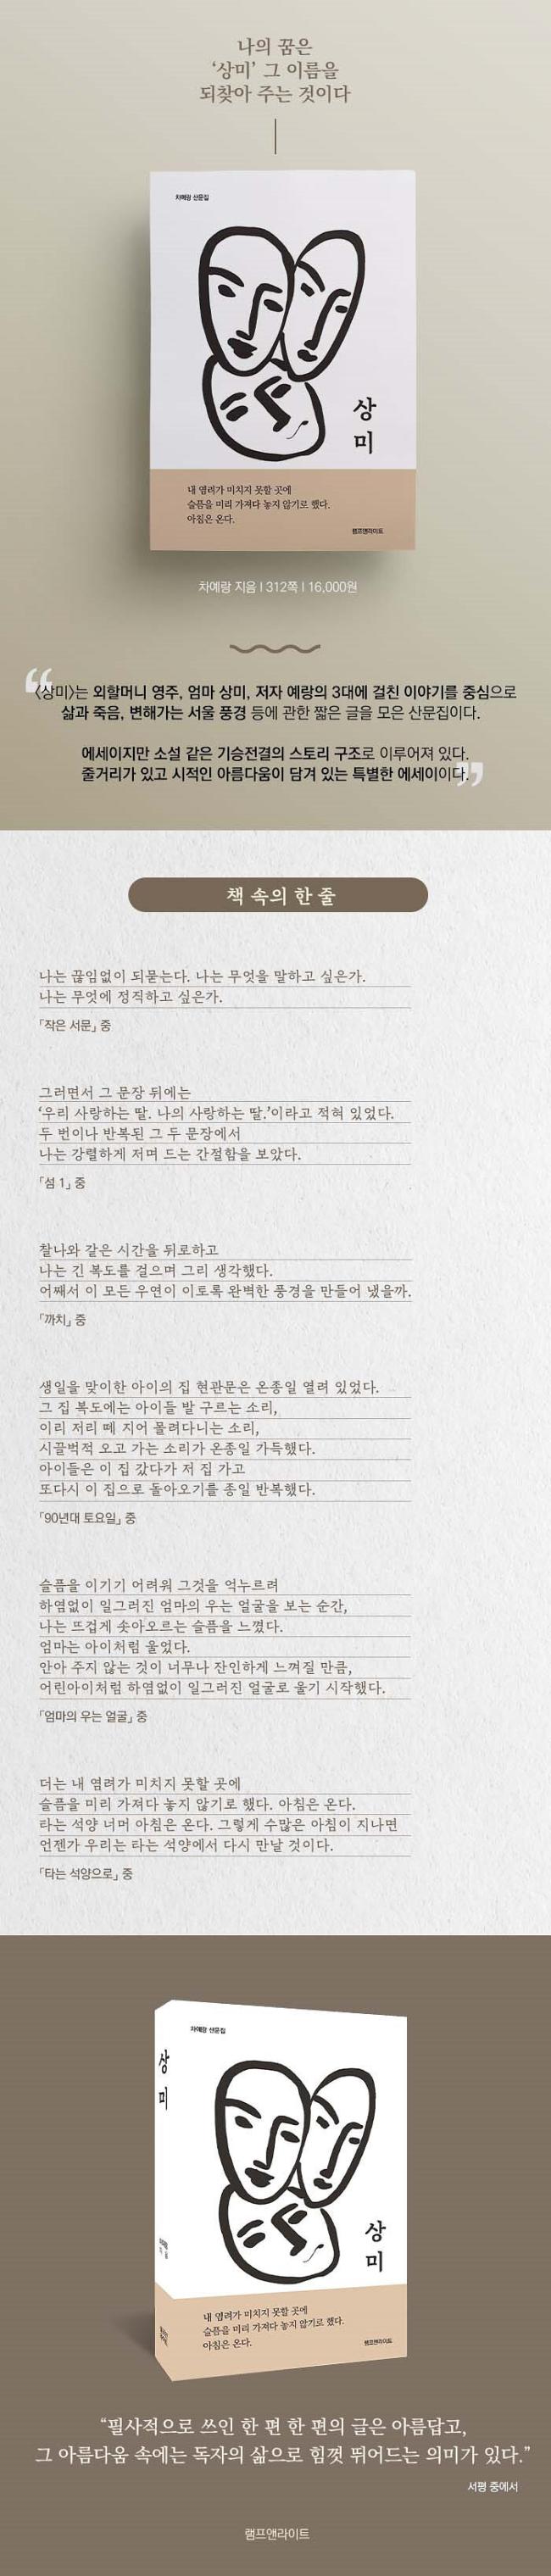 나의 꿈은
‘상미’ 그 이름을
되찾아 주는 것이다
차예랑 산문집
상
미
내 염려가 미치지 못할 곳에
슬픔을 미리 가져다 놓지 않기로 했다.
아침은 온다.
램프앤라이트
차예랑 지음 | 312쪽 | 16,000원
“
〈상미〉는 외할머니 영주, 엄마 상미, 저자 예랑의 3대에 걸친 이야기를 중심으로
삶과 죽음, 변해가는 서울 풍경 등에 관한 짧은 글을 모은 산문집이다.
에세이지만 소설 같은 기승전결의 스토리 구조로 이루어져 있다.
줄거리가 있고 시적인 아름다움이 담겨 있는 특별한 에세이이다.
”
책 속의 한 줄
나는 끊임없이 되묻는다. 나는 무엇을 말하고 싶은가.
나는 무엇에 정직하고 싶은가.
「작은 서문」 중
그러면서 그 문장 뒤에는
‘우리 사랑하는 딸. 나의 사랑하는 딸.’이라고 적혀 있었다.
두 번이나 반복된 그 두 문장에서
나는 강렬하게 저며 드는 간절함을 보았다.
「섬 1」 중
찰나와 같은 시간을 뒤로하고
나는 긴 복도를 걸으며 그리 생각했다.
어째서 이 모든 우연이 이토록 완벽한 풍경을 만들어 냈을까.
「까치」 중
생일을 맞이한 아이의 집 현관문은 온종일 열려 있었다.
그 집 복도에는 아이들 발 구르는 소리,
이리 저리 떼 지어 몰려다니는 소리,
시끌벅적 오고 가는 소리가 온종일 가득했다.
아이들은 이 집 갔다가 저 집 가고
또다시 이 집으로 돌아오기를 종일 반복했다.
「90년대 토요일」 중
슬픔을 이기기 어려워 그것을 억누르려
하염없이 일그러진 엄마의 우는 얼굴을 보는 순간,
나는 뜨겁게 솟아오르는 슬픔을 느꼈다.
엄마는 아이처럼 울었다.
안아 주지 않는 것이 너무나 잔인하게 느껴질 만큼,
어린아이처럼 하염없이 일그러진 얼굴로 울기 시작했다.
「엄마의 우는 얼굴」 중
더는 내 염려가 미치지 못할 곳에
슬픔을 미리 가져다 놓지 않기로 했다. 아침은 온다.
타는 석양 너머 아침은 온다. 그렇게 수많은 아침이 지나면
언젠가 우리는 타는 석양에서 다시 만날 것이다.
「타는 석양으로」 중
차예랑 산문집
상
미
상
미
내 염려가 미치지 못할 곳에
슬픔을 미리 가져다 놓지 않기로 했다.
아침은 온다.
램프앤라이트
“필사적으로 쓰인 한 편 한 편의 글은 아름답고,
그 아름다움 속에는 독자의 삶으로 힘껏 뛰어드는 의미가 있다.”
서평 중에서
램프앤라이트